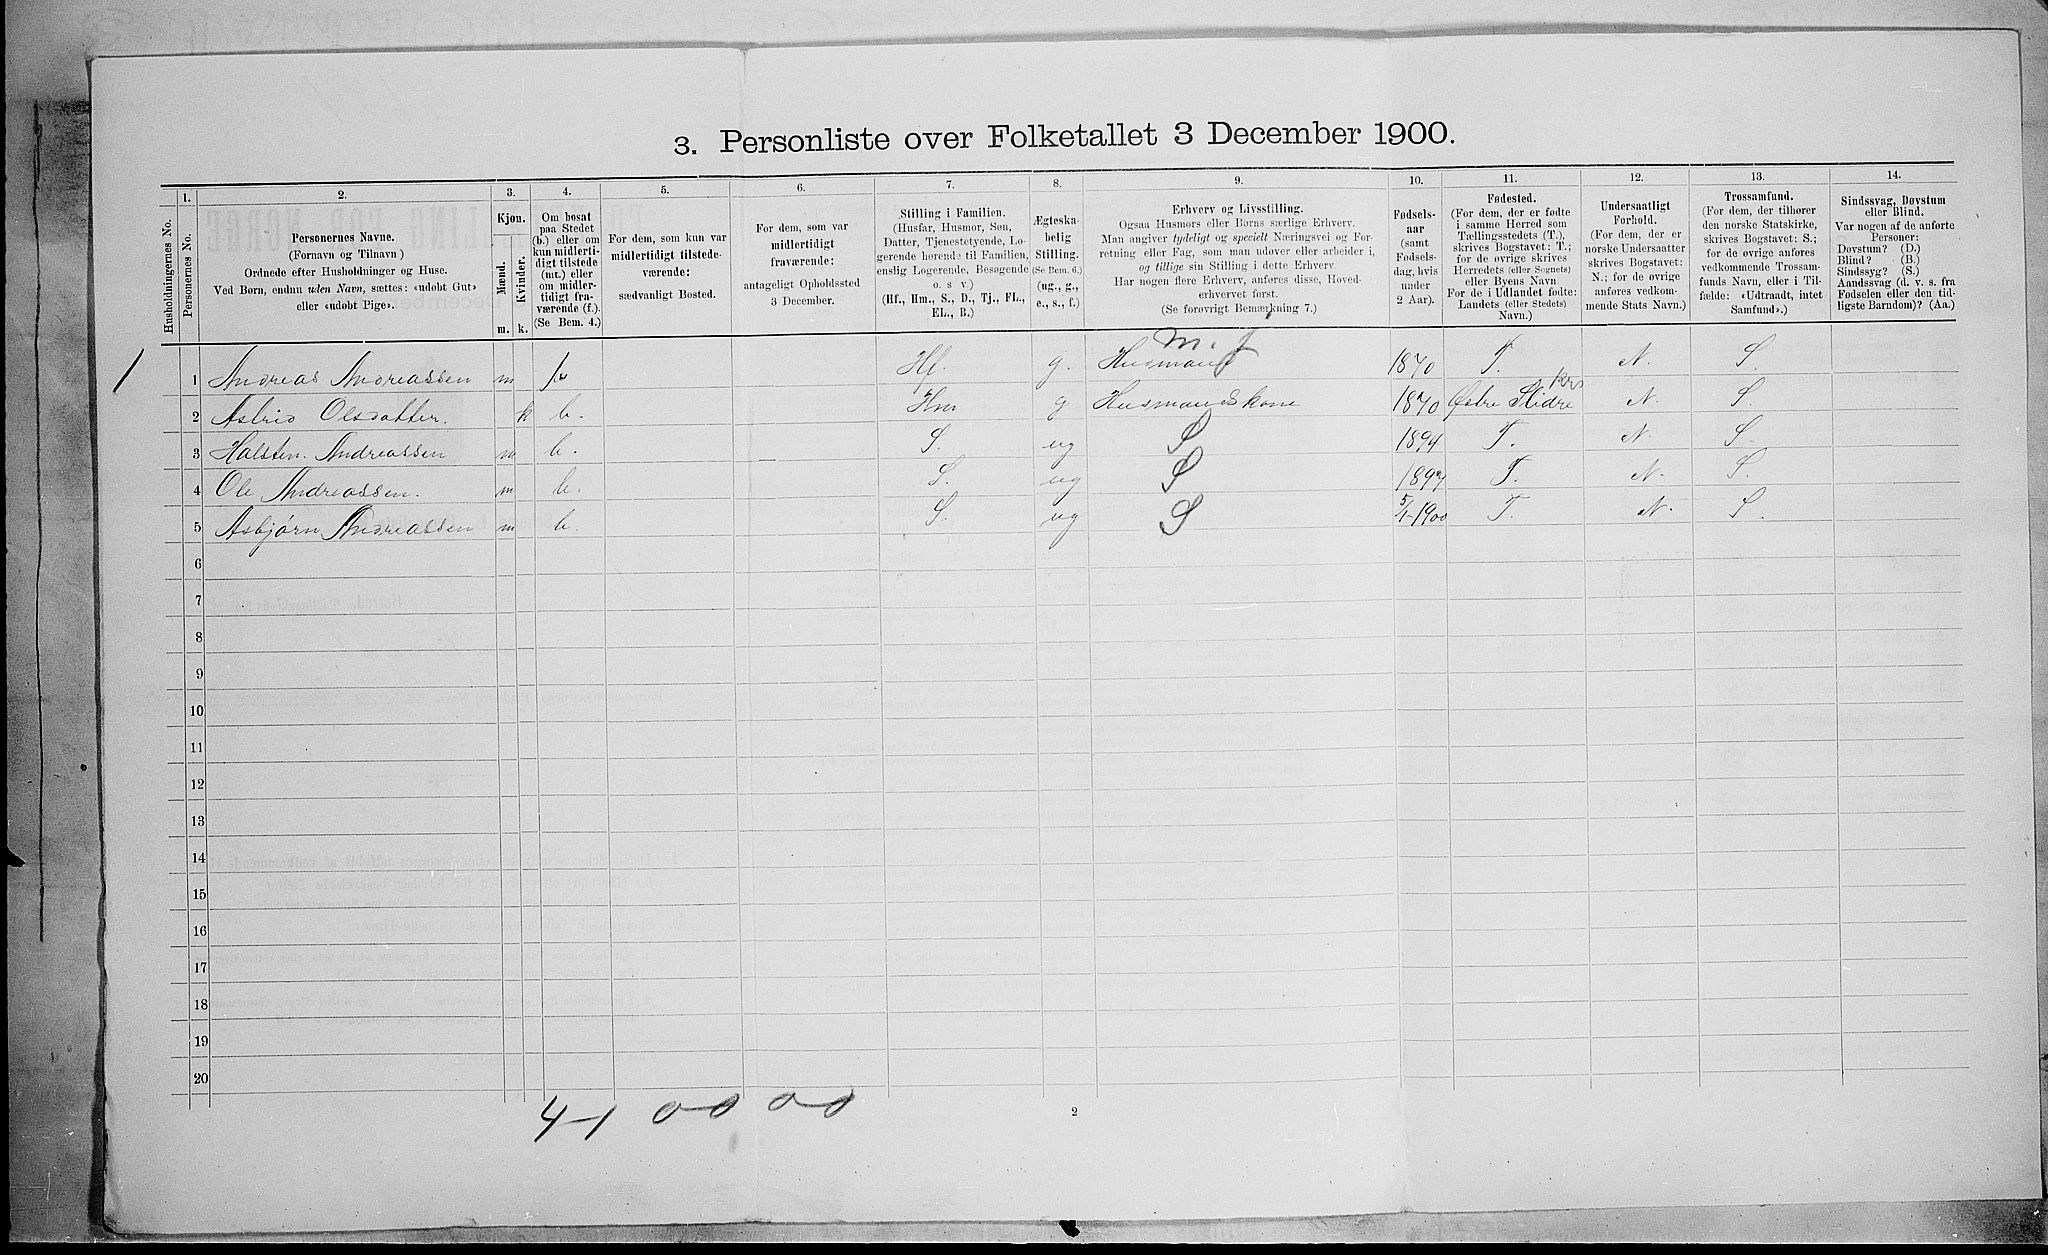 3. Personliste over Folketallet 3 December 1900.
1. 2. 3. 4. 5. 6. 7. 8. 9. 10. 11. 12. 13. 14.
Husholdningernes No.
Personernes No.
Personernes Navne.
(Fornavn og Tilnavn)
Ordnede efter Husholdninger og Huse.
Ved Børn, endnu uden Navn, sættes: «udøbt Gut»
eller «udøbt Pige».
Kjøn.
Mænd.
Kvinder.
m. k.
Om bosat
paa Stedet
(b.) eller om
kun midlerti-
digt tilstede
(mt.) eller
om midler-
tidigt fra-
værende (f.).
(Se Bem. 4.)
For dem, som kun var
midlertidigt tilstede-
værende:
sædvanligt Bosted.
For dem, som var
midlertidigt
fraværende:
antageligt Opholdssted
3 December.
Stilling i Familien.
(Husfar, Husmor, Søn,
Datter, Tjenestetyende, Lo-
gerende hørende til Familien,
enslig Logerende, Besøgende
o. s. v.)
(Hf., Hm., S., D., Tj., FL.,
EL., B.)
Ægteska-
belig
Stilling.
(Se Bem. 6.)
(ug., g.,
e., s., f.)
Erhverv og Livsstilling.
Ogsaa Husmors eller Børns særlige Erhverv.
Man angiver tydeligt og specielt Næringsvei og For-
retning eller Fag, som man udøver eller arbeider i,
og tillige sin Stilling i dette Erhverv.
Har nogen flere Erhverv, anføres disse, Hoved-
erhvervet først.
(Se forøvrigt Bemærkning 7.)
Fødsels-
aar
(samt
Fødsels-
dag, hvis
under
2 Aar).
Fødested.
(For dem, der er fødte
i samme Herred som
Tællingsstedets (T.),
skrives Bogstavet: T.;
for de øvrige skrives
Herredets (eller Sognets)
eller Byens Navn
For de i Udlandet fødte:
Landets (eller Stedets)
Navn.)
Undersaatligt
Forhold.
(For dem, der er
norske Undersaatter
skrives Bogstavet:
N.; for de øvrige
anføres vedkom-
mende Stats Navn.)
Trossamfund.
(For dem, der tilhører
den norske Statskirke,
skrives Bogstavet: S.;
for de øvrige anføres
vedkommende Trossam-
funds Navn, eller i Til-
fælde: «Udtraadt, intet
Samfund».)
Sindssvag, Døvstum
eller Blind.
Var nogen af de anførte
Personer:
Døvstum? (D.)
Blind? (B.)
Sindssyg? (S.)
Aandssvag (d. v. s. fra
Fødselen eller den tid-
ligste Barndom)? (Aa.)
m. j
1 1 Andreas Andreassen m b Hf. g. Husmand 1870 T. N. S.
Krs
2 Astrid Olsdatter. k b. Hm g Husmandskone 1870 Østre Slidre N. S.
3 Halsten Andreassen m b. S. ug S 1894 T. N. S.
4 Ole Andreassen. m b. S. ug S 1897 T. N. S.
5 Asbjørn Andreassen m b. S. ug S 5/1-1900 T. N. S.
6
7
8
9
10
11
12
13
14
15
16
17
18
19
20
4-1 0-0 0-0
2